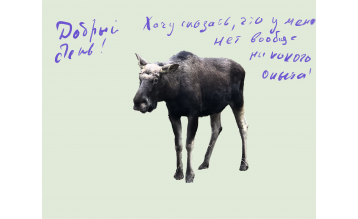 Добрый
день!
Хочу сказать, что у меня
нет вообще
никакого
опыта!